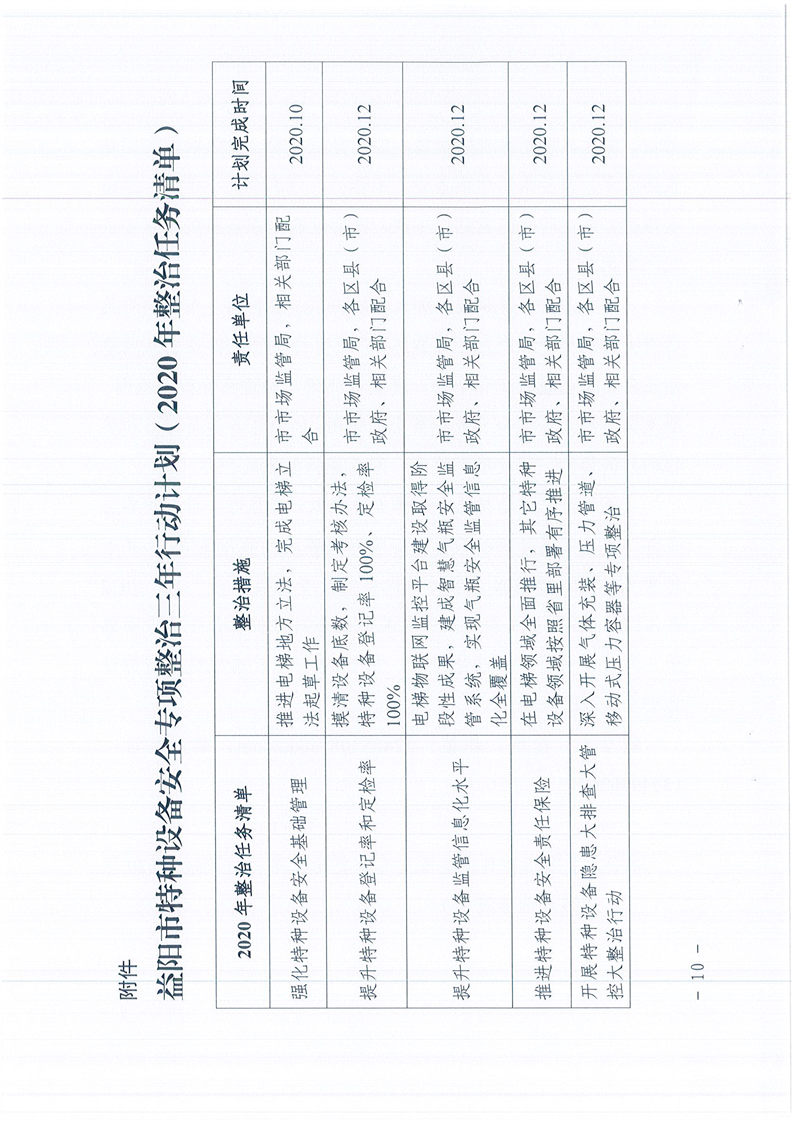 附件
益阳市特种设备安全专项整治三年行动计划（2020 年整治任务清单）
2020 年整治任务清单
整治措施
责任单位
计划完成时间
强化特种设备安全基础管理
推进电梯地方立法，完成电梯立
法起草工作
市市场监管局，相关部门配
合
2020.10
提升特种设备登记率和定检率
摸清设备底数，制定考核办法，
特种设备登记率 100%、定检率
100%
市市场监管局，各区县（市）
政府、相关部门配合
2020.12
提升特种设备监管信息化水平
电梯物联网监控平台建设取得阶
段性成果，建成智慧气瓶安全监
管系统，实现气瓶安全监管信息
化全覆盖
市市场监管局，各区县（市）
政府、相关部门配合
2020.12
推进特种设备安全责任保险
在电梯领域全面推行，其它特种
设备领域按照省里部署有序推进
市市场监管局，各区县（市）
政府、相关部门配合
2020.12
开展特种设备隐患大排查大管
控大整治行动
深入开展气体充装、压力管道、
移动式压力容器等专项整治
市市场监管局，各区县（市）
政府、相关部门配合
2020.12
- 10 -